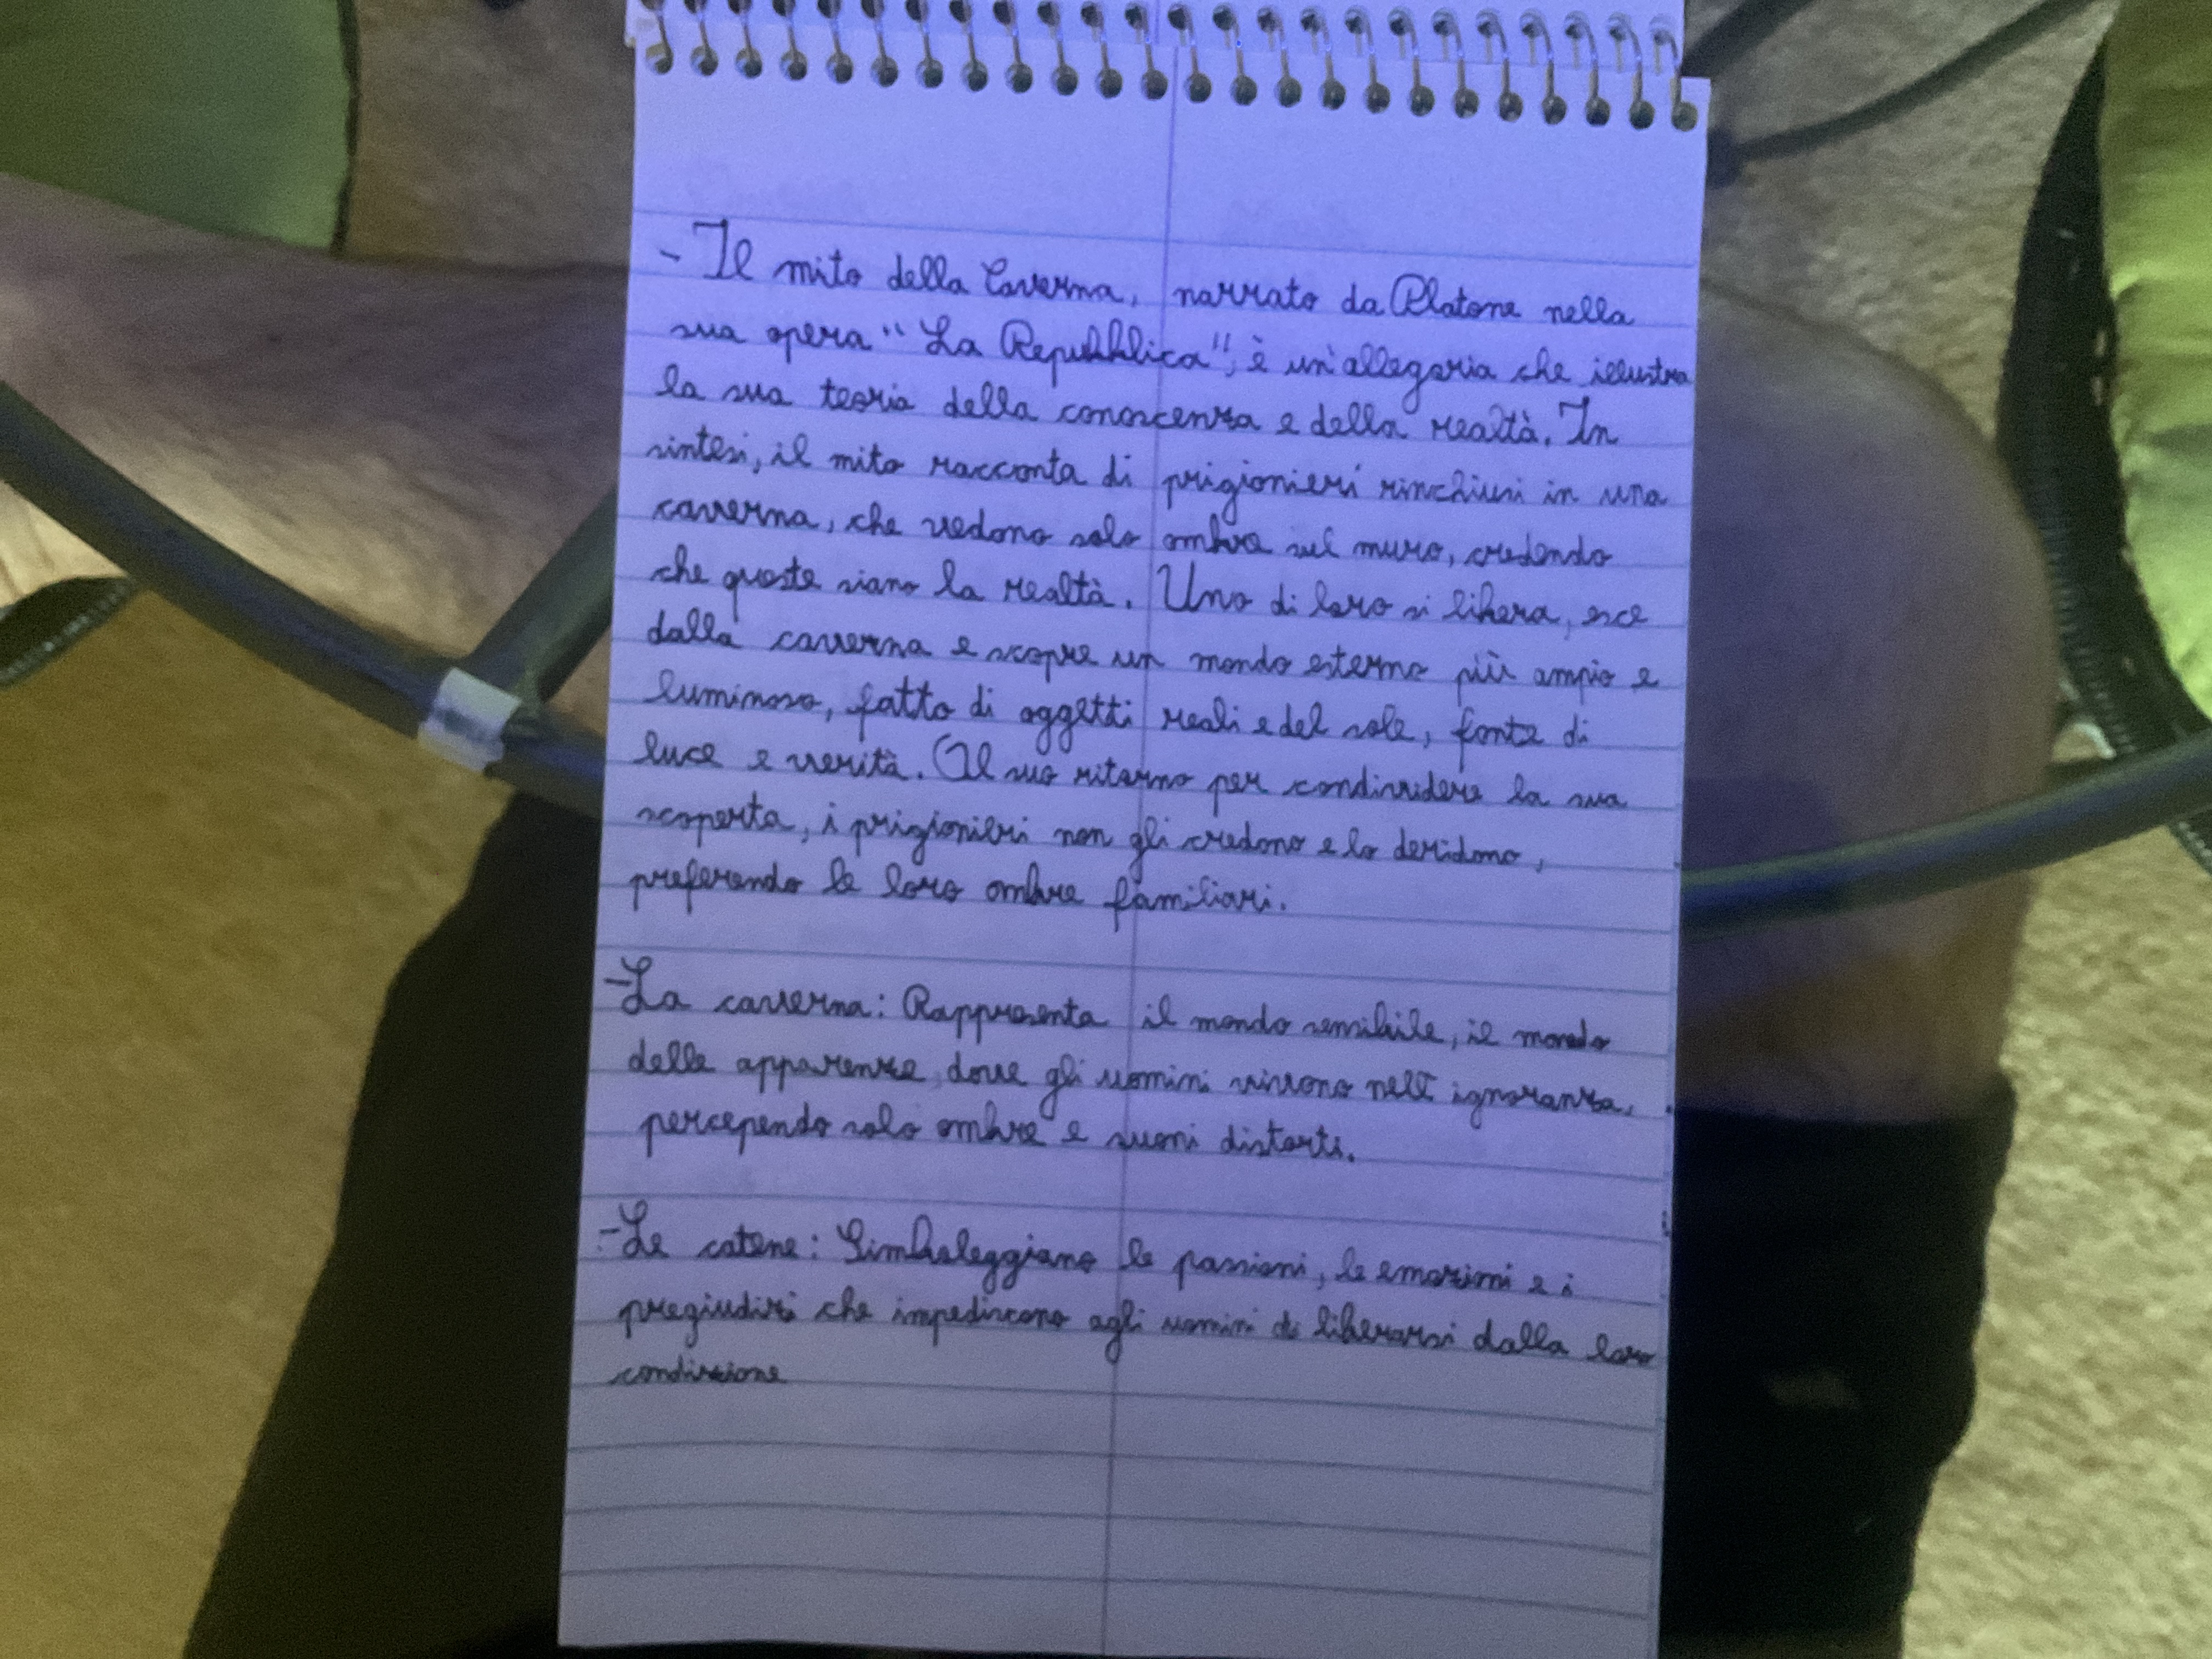 - Il mito della Caverna, narrato da Platone nella
sua opera "La Repubblica", è un'allegoria che illustra
la sua teoria della conoscenza e della realtà. In
sintesi, il mito racconta di prigionieri rinchiusi in una
caverna, che vedono solo ombre sul muro, credendo
che queste siano la realtà. Uno di loro si libera, esce
dalla caverna e scopre un mondo esterno più ampio e
luminoso, fatto di oggetti reali e del sole, fonte di
luce e verità. Al suo ritorno per condividere la sua
scoperta, i prigionieri non gli credono e lo deridono,
preferendo le loro ombre familiari.
- La caverna: Rappresenta il mondo sensibile, il mondo
delle apparenze, dove gli uomini vivono nell'ignoranza,
percependo solo ombre e suoni distorti.
- Le catene: Simboleggiano le passioni, le emozioni e i
pregiudizi che impediscono agli uomini di liberarsi dalla loro
condizione